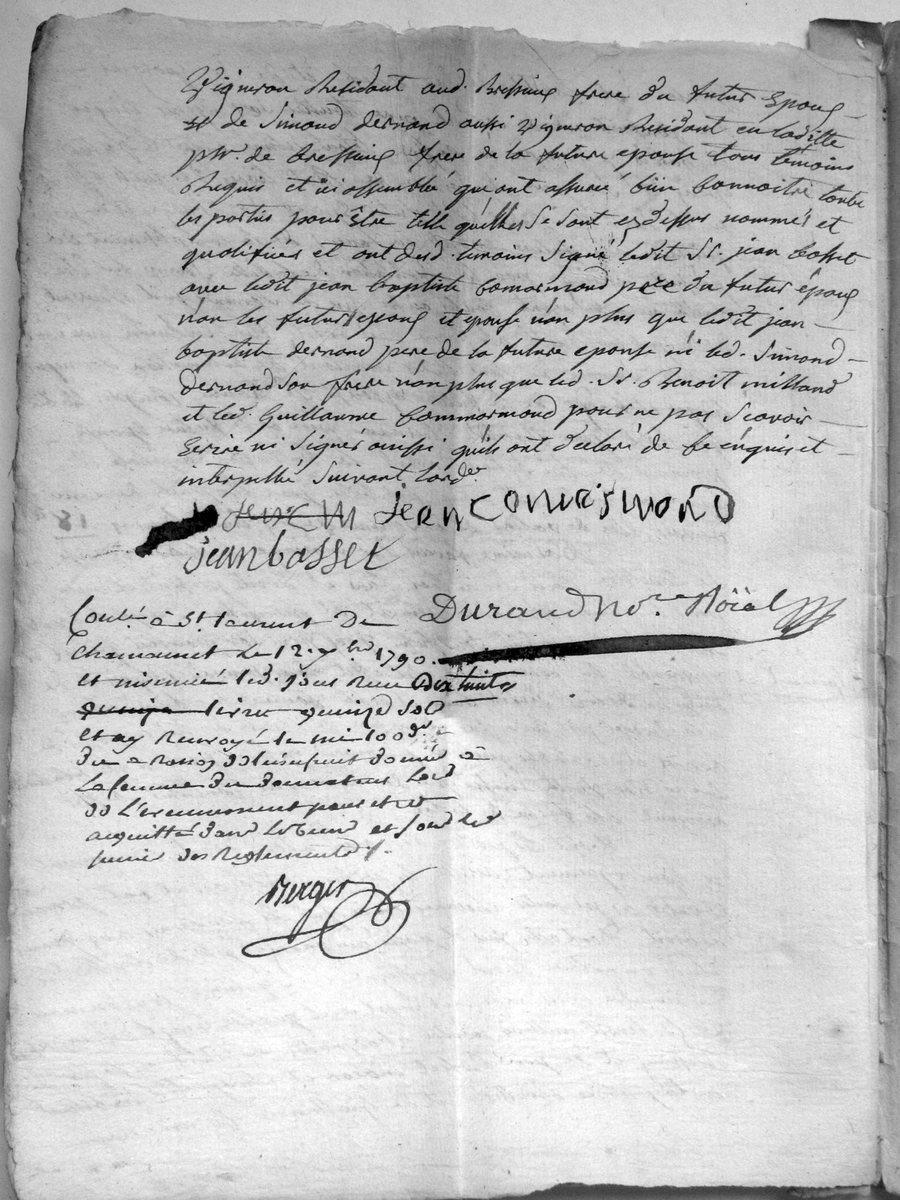 Vigneron Residant aud. Bressieux frere du futur Epoux
et de Simond dernand aussi Vigneron Residant en laditte
psse. de Bressieux frere de la future epouse tous temoins
Requis et ici assemblé qui ont assuré bien connoitre toute
les partis pour être telle quelles se sont cy dessus nommés et
qualifiés et ont desd. temoins signé ledit Sr. jean basset
avec ledit jean baptiste Commarmond père du futur époux
non les futur epoux et epouse non plus que ledit jean
baptiste dernand pere de la future epouse ni led. Simond
dernand son frere non plus que led. Sr. Benoit milland
et led. Guillaume Commarmond pour ne pas scavoir
Ecrire ni signer aussi qu'ils ont déclaré de ce enquis et
interpellé suivant lordce
jean Comarmond
jean basset
Durand No.re Roïal
Conlé. à St. laurent de
Chamousset le 12. 7bre 1790.
et insinué led. jour Reçu dix huit
livres quinze sols
et ay Renvoyé le me 100d.r
du a raison de l'usufruit donné à
La femme du donateur Lord
de L'evenement pour etre
acquitté dans le tems et sous les
peines des Reglements /.
Berger